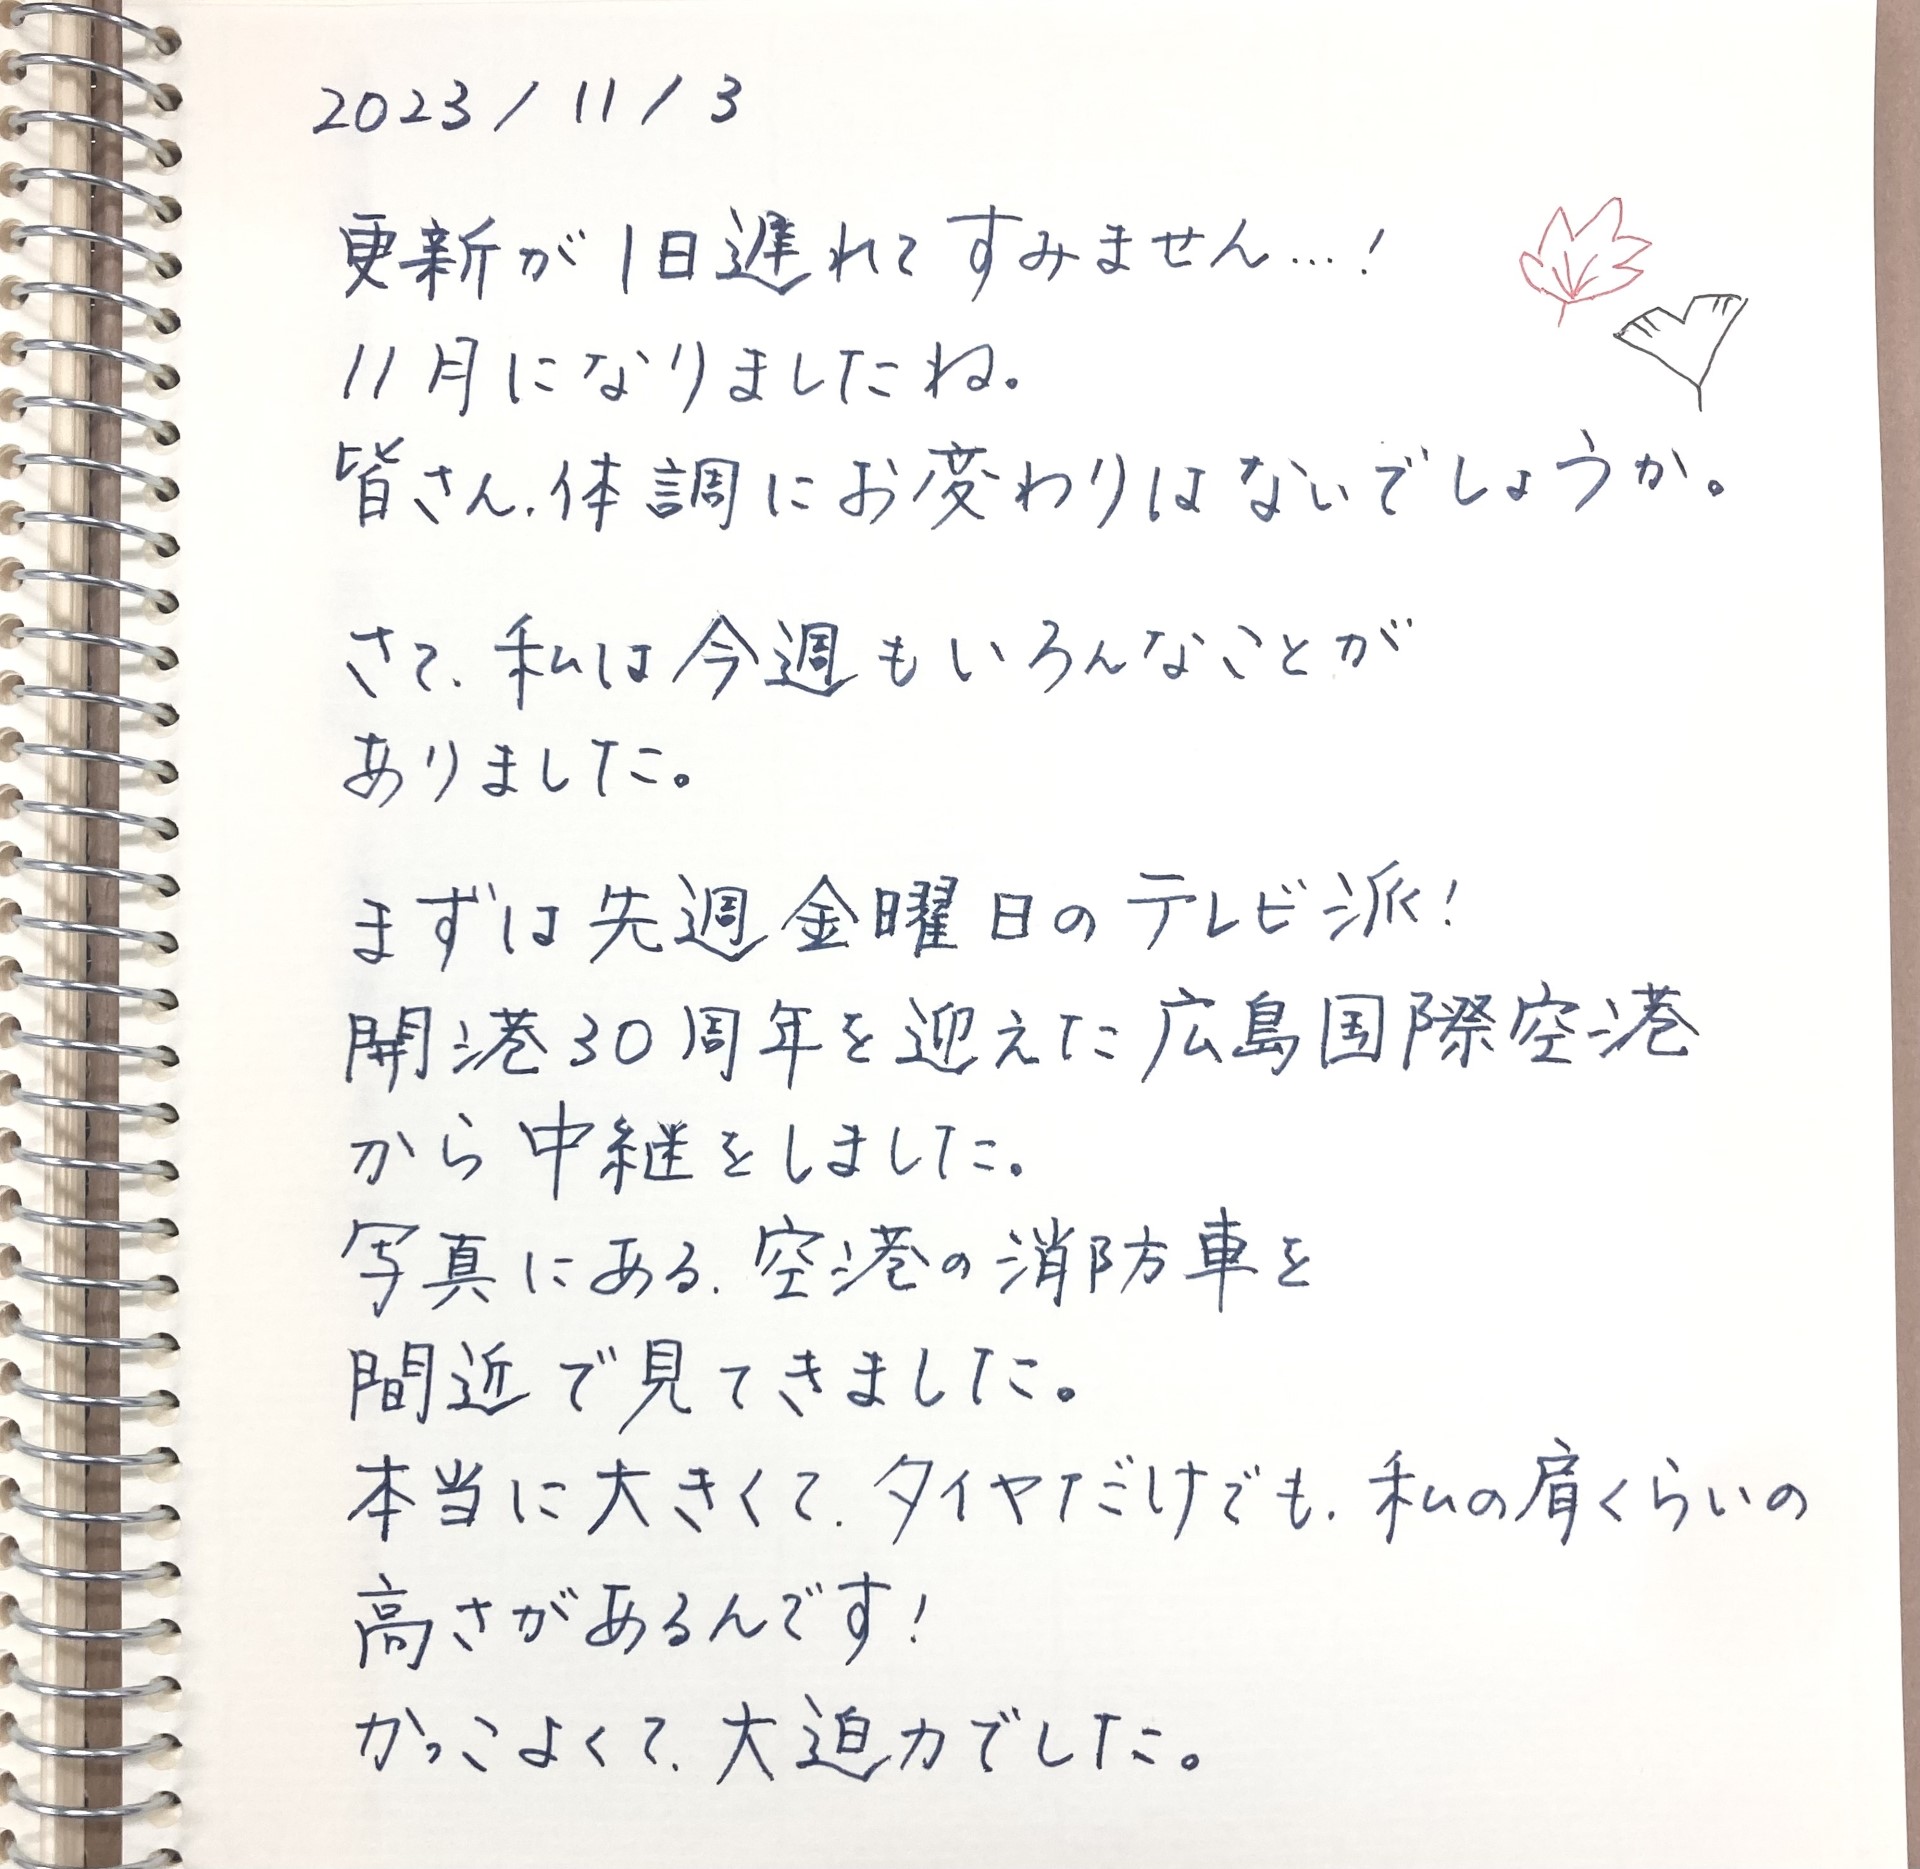 2023/11/3
更新が1日遅れてすみません…!
11月になりましたね。
皆さん、体調にお変わりはないでしょうか。
さて、私は今週もいろんなことが
ありました。
まずは先週金曜日のテレビ派!
開港30周年を迎えた広島国際空港
から中継をしました。
写真にある、空港の消防車を
間近で見てきました。
本当に大きくて、タイヤだけでも、私の肩くらいの
高さがあるんです!
かっこよくて、大迫力でした。